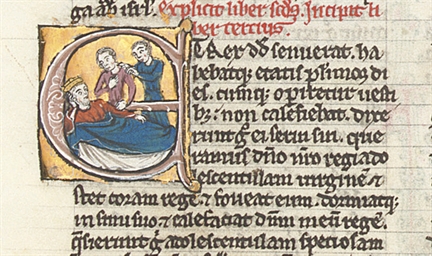 ga ab isrl. explicit liber scds Incipit li
ber tercius.
ET Rex dd senuerat. ha
bebatq; etatis plimos di
es. cumq; opiretur uesti
bꝫ. non calefiebat. dixe
runt g ei serui sui. que
ramus dño nro regi ado
lescentulam uirginē &
stet coram rege. & foueat eum. dormiatq;
in sinu suo & calefaciat dñm meū̄ regē.
Qsierunt g adolescentulam speciosam